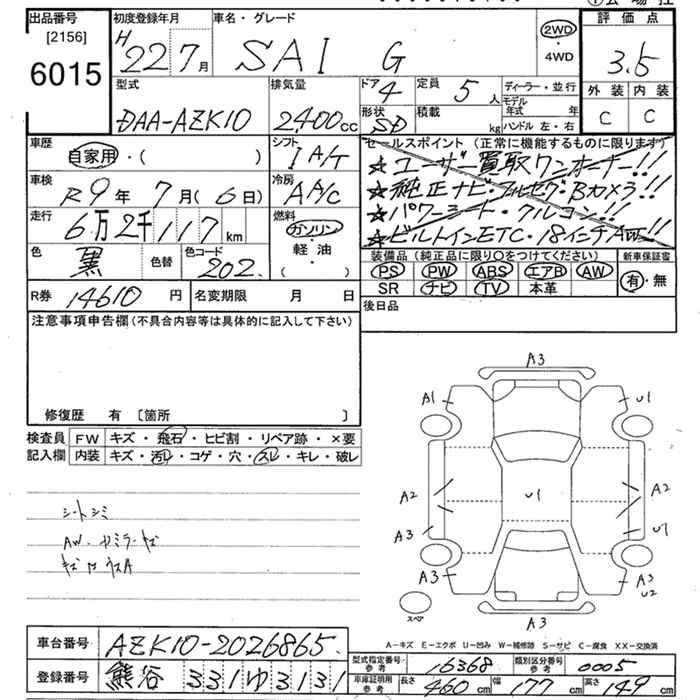 出品番号
[2156]
6015
初度登録年月
H 22 7月
車名・グレード
SAI G
2WD
・
4WD
評価点
3.5
外装 内装
C C
型式
DAA-AZK10
排気量
2400cc
ドア
4
定員
5人
形状
SD
積載
kg
ディーラー・並行
モデル年式 年
ハンドル 左・右
車歴
自家用・( )
シフト
I A/T
車検
R 9年 7月(6日)
冷房
A A/C
走行
6万2千117km
燃料
ガソリン
・
軽油
色
黒
色替
色コード
202
R券 14610円
名変期限 月 日
セールスポイント(正常に機能するものに限ります)
★ユーザー買取ワンオーナー!!
★純正ナビ・フルセグ・Bカメラ!!
★パワーシート・クルコン!!
★ビルトインETC・18インチAW!!
装備品(純正品に限り○をつけてください)
PS PW ABS エアB AW
SR ナビ TV 本革
新車保証書
有・無
後日品
注意事項申告欄(不具合内容等は具体的に記入して下さい)
修復歴 有 [箇所 ]
検査員記入欄
FW キズ・飛石・ヒビ割・リペア跡・×要
内装 キズ・汚レ・コゲ・穴・スレ・キレ・破レ
シートシミ
AW・ドアミラーキズ
キズ凹ウスA
A3
A1
U1
A2
U1
A2
A3
U1
A3
A3
U2
A3
スペア
A-キズ E-エクボ U-凹み W-補修跡 S-サビ C-腐食 XX-交換済
車台番号 AZK10-2026865
登録番号 熊谷 331ゆ3131
型式指定番号参考 16368
類別区分番号参考 0005
車庫証明用参考 長さ 460cm 幅 177cm 高さ 149cm